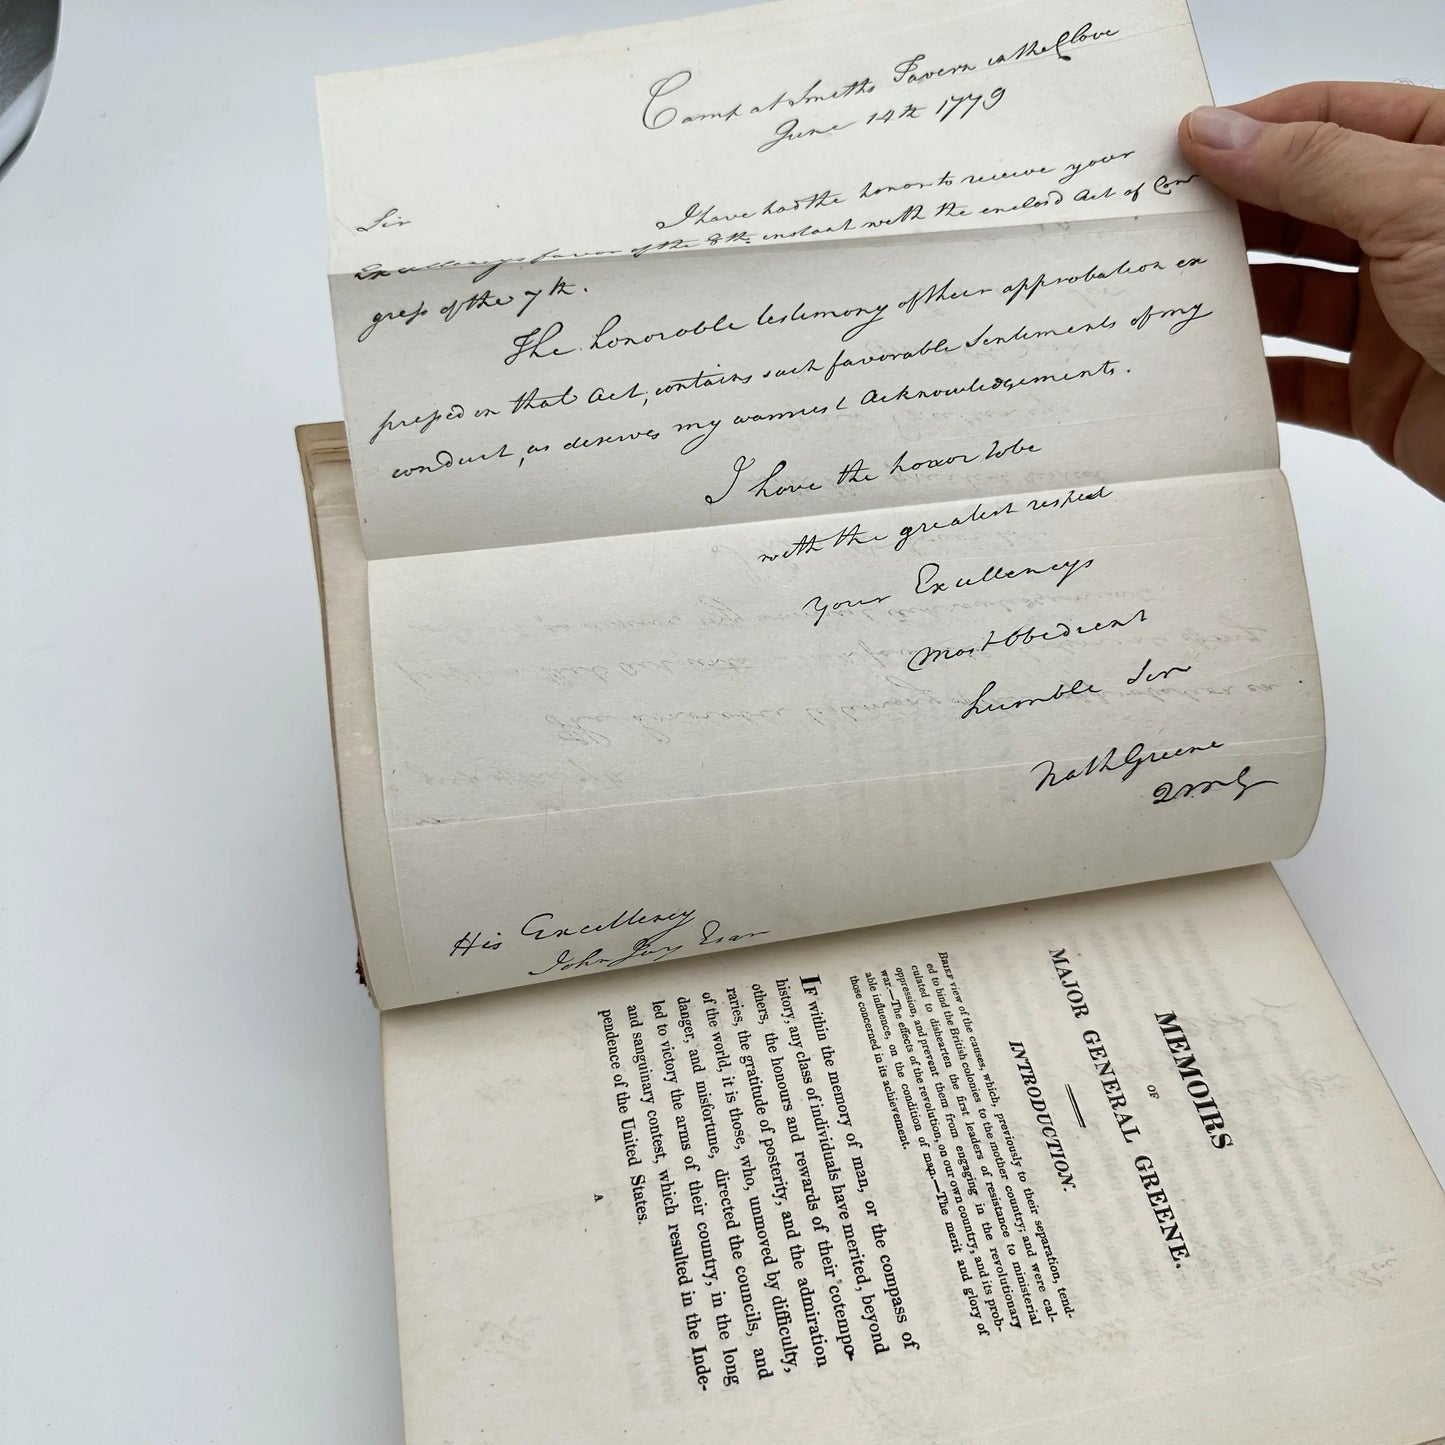 Camp at Smiths Tavern in the Clove
June 14th 1779
Sir
I have had the honor to receive your
Excellencys favor of the 8th instant with the enclosd Act of Con
gress of the 7th.
The honorable testimony of their approbation ex
pressed in that Act, contains such favorable Sentiments of my
conduct, as deserves my warmest Acknowledgements.
I have the honor to be
with the greatest respect
Your Excellencys
Most Obedient
humble Ser
Nath Greene
QMG
His Excellency
John Jay Esqr
MEMOIRS
OF
MAJOR GENERAL GREENE.
INTRODUCTION.
BRIEF view of the causes, which, previously to their separation, tend-
ed to bind the British colonies to the mother country; and were cal-
culated to dishearten the first leaders of resistance to ministerial
oppression, and prevent them from engaging in the revolutionary
war.—The effects of the revolution, on our own country, and its prob-
able influence, on the condition of man.—The merit and glory of
those concerned in its achievement.
IF within the memory of man, or the compass of
history, any class of individuals have merited, beyond
others, the honours and rewards of their cotempo-
raries, the gratitude of posterity, and the admiration
of the world, it is those, who, unmoved by difficulty,
danger, and misfortune, directed the councils, and
led to victory the arms of their country, in the long
and sanguinary contest, which resulted in the Inde-
pendence of the United States.
A